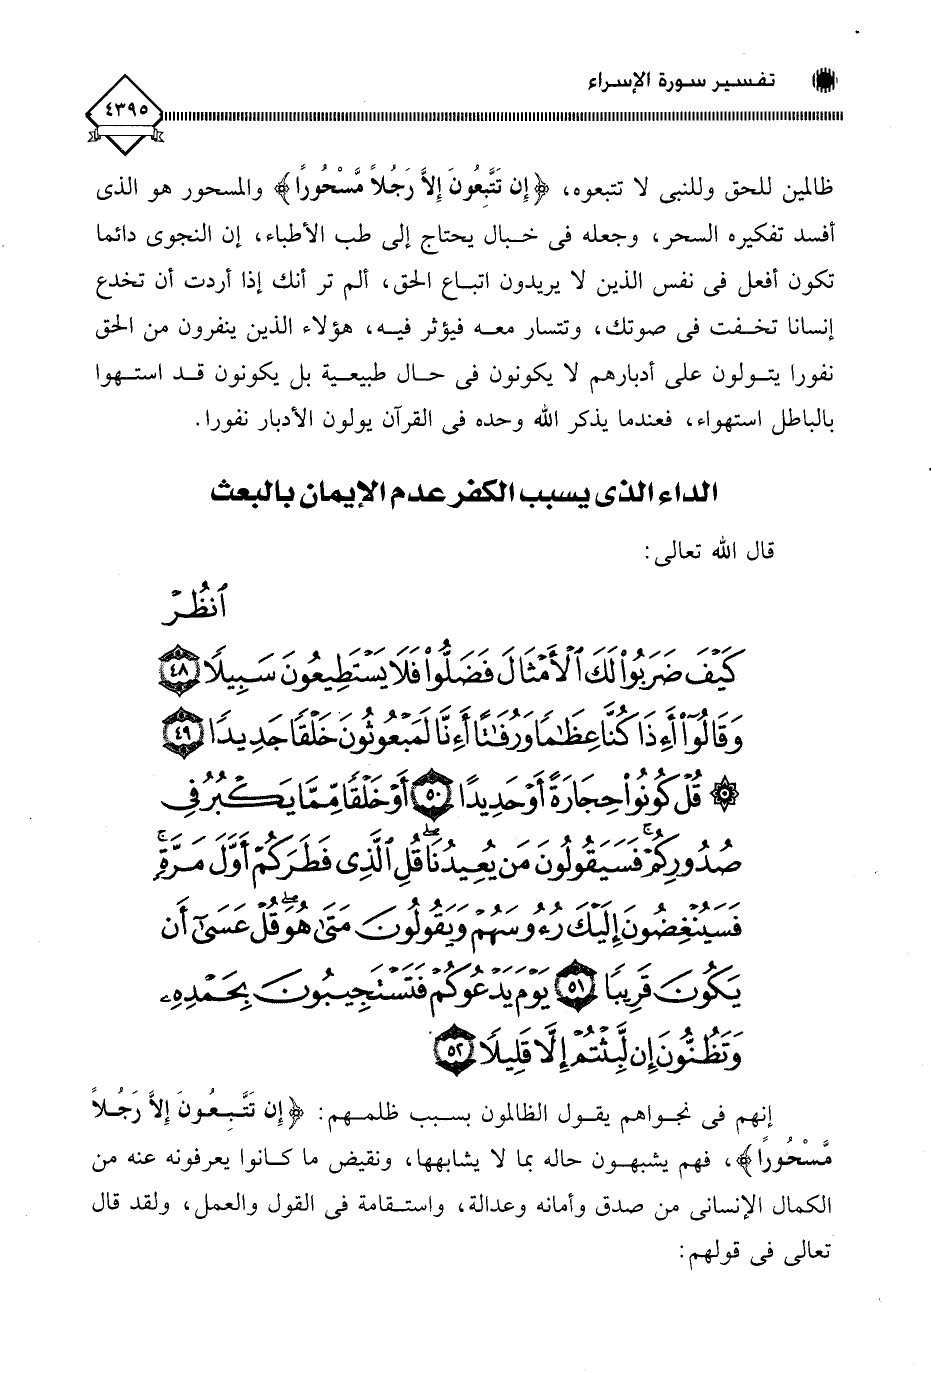 تفسير سورة الإسراء
٤٣٩٥
ظالمين للحق وللنبى لا تتبعوه، ﴿إِن تَتَّبِعُونَ إِلاَّ رَجُلاً مَّسْحُورًا﴾ والمسحور هو الذى
أفسد تفكيره السحر، وجعله فى خبال يحتاج إلى طب الأطباء، إن النجوى دائما
تكون أفعل فى نفس الذين لا يريدون اتباع الحق، ألم تر أنك إذا أردت أن تخدع
إنسانا تخفت فى صوتك، وتتسار معه فيؤثر فيه، هؤلاء الذين ينفرون من الحق
نفورا يتولون على أدبارهم لا يكونون فى حال طبيعية بل يكونون قد استهوا
بالباطل استهواء، فعندما يذكر الله وحده فى القرآن يولون الأدبار نفورا.
الداء الذى يسبب الكفر عدم الإيمان بالبعث
قال الله تعالى:
ٱنظُرْ
كَيْفَ ضَرَبُوا۟ لَكَ ٱلْأَمْثَالَ فَضَلُّوا۟ فَلَا يَسْتَطِيعُونَ سَبِيلًا ٤٨
وَقَالُوٓا۟ أَءِذَا كُنَّا عِظَٰمًا وَرُفَٰتًا أَءِنَّا لَمَبْعُوثُونَ خَلْقًا جَدِيدًا ٤٩
۞ قُلْ كُونُوا۟ حِجَارَةً أَوْ حَدِيدًا ٥٠ أَوْ خَلْقًا مِّمَّا يَكْبُرُ فِى
صُدُورِكُمْ ۚ فَسَيَقُولُونَ مَن يُعِيدُنَا ۖ قُلِ ٱلَّذِى فَطَرَكُمْ أَوَّلَ مَرَّةٍ ۚ
فَسَيُنْغِضُونَ إِلَيْكَ رُءُوسَهُمْ وَيَقُولُونَ مَتَىٰ هُوَ ۖ قُلْ عَسَىٰٓ أَن
يَكُونَ قَرِيبًا ٥١ يَوْمَ يَدْعُوكُمْ فَتَسْتَجِيبُونَ بِحَمْدِهِۦ
وَتَظُنُّونَ إِن لَّبِثْتُمْ إِلَّا قَلِيلًا ٥٢
إنهم فى نجواهم يقول الظالمون بسبب ظلمهم: ﴿إِن تَتَّبِعُونَ إِلاَّ رَجُلاً
مَّسْحُورًا﴾، فهم يشبهون حاله بما لا يشابهها، ونقيض ما كانوا يعرفونه عنه من
الكمال الإنسانى من صدق وأمانه وعدالة، واستقامة فى القول والعمل، ولقد قال
تعالى فى قولهم: